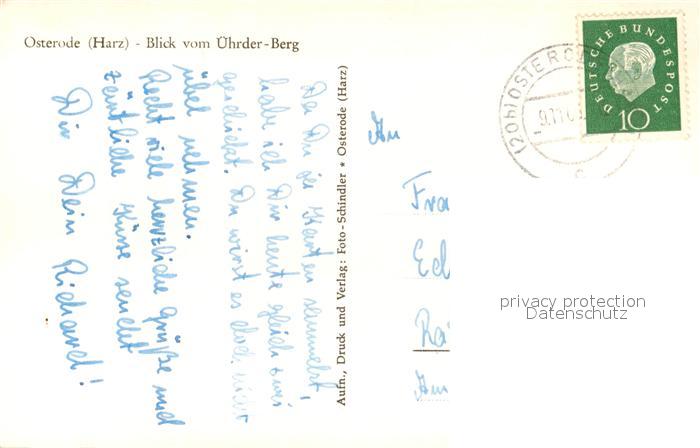 Osterode (Harz) - Blick vom Ührder-Berg
Da Du ja Karten sammelst,
habe ich Dir heute gleich zwei
geschickt. Du wirst es doch nicht
übel nehmen.
Recht viele herzliche Grüße und
zärtliche Küsse sendet
Dir Dein Richard!
Aufn., Druck und Verlag: Foto-Schindler * Osterode (Harz)
An
Fra
Ed
An
DEUTSCHE BUNDESPOST
10
(20b) OSTERO
privacy protection
Datenschutz